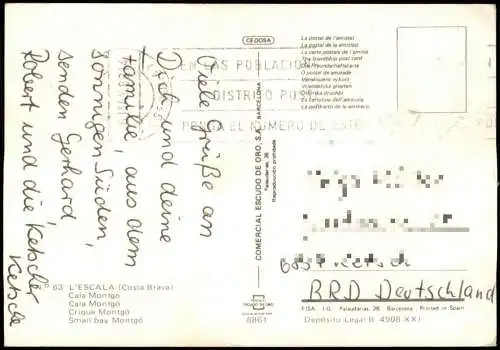 CEDOSA
La postal de l'amistat
La postal de la amistad
La carte postale de l'amitié
The friendship post card
Die Freundschaftskarte
O postal de amizade
EN LAS POBLACIO
DISTRITO PO
PONGA EL NUMERO DE ESTE
Viele Grüße an
Dich und deine
Familie, aus dem
sonnigen Süden,
senden Gerhard,
Robert und die Ketscher
Ketsche
COMERCIAL ESCUDO DE ORO, S.A.
BARCELONA
Palaudarias, 26
Reproducción prohibida
Ketsch
BRD Deutschland
63 L'ESCALA (Costa Brava)
Cala Montgó
Cala Montgó
Crique Montgó
Small bay Montgó
ESCUDO DE ORO
8861
FISA. I.G. Palaudarias, 26 Barcelona - Printed in Spain
Depósito Legal B. 4908-XXI